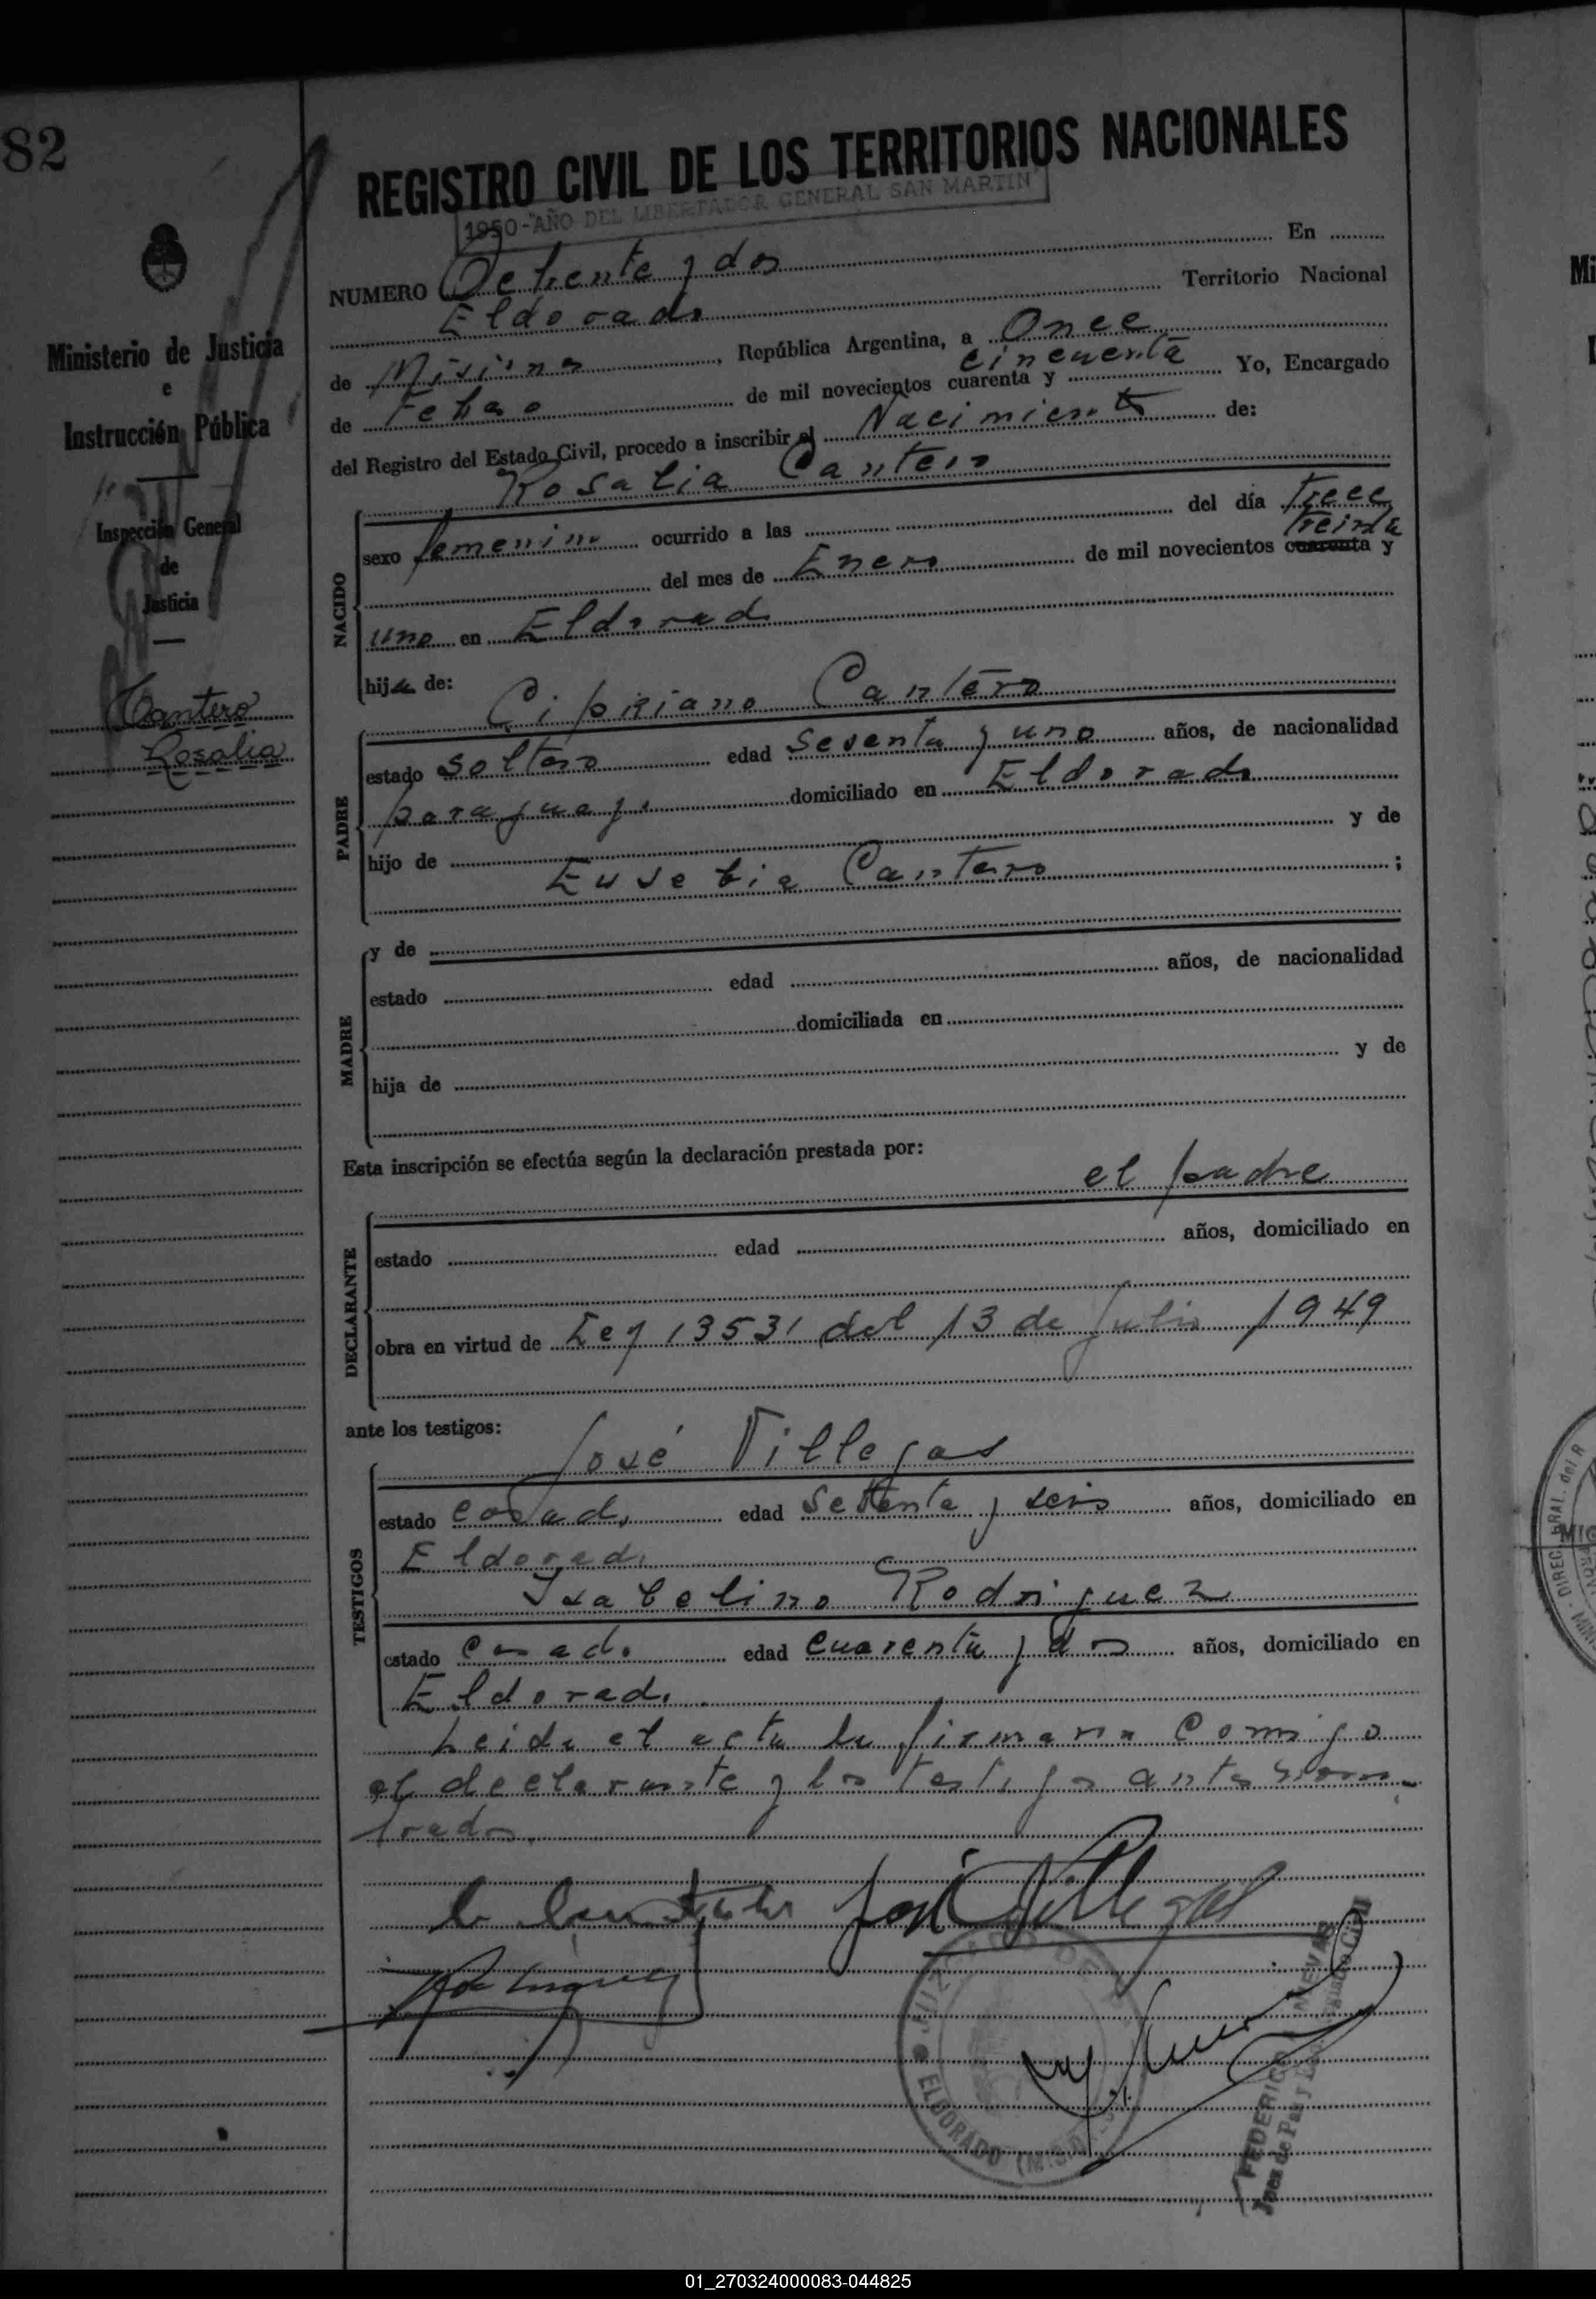 82
REGISTRO CIVIL DE LOS TERRITORIOS NACIONALES
1950-"AÑO DEL LIBERTADOR GENERAL SAN MARTIN"
NUMERO Ochenta y dos En
Eldorado Territorio Nacional
de Misiones, República Argentina, a Once
de Febrero de mil novecientos cuarenta y cincuenta Yo, Encargado
del Registro del Estado Civil, procedo a inscribir el Nacimiento de:
Rosalia Cantero
NACIDO
sexo femenino ocurrido a las del día trece
del mes de Enero de mil novecientos cuarenta y treinta
uno en Eldorado
hija de:
Cipriano Cantero
PADRE
estado soltero edad sesenta y uno años, de nacionalidad
paraguayo domiciliado en Eldorado
hijo de y de
Eusebia Cantero ;
MADRE
y de
estado edad años, de nacionalidad
domiciliada en
hija de y de
Esta inscripción se efectúa según la declaración prestada por:
el padre
DECLARANTE
estado edad años, domiciliado en
obra en virtud de Ley 13531 del 13 de Julio 1949
ante los testigos:
José Villegas
TESTIGOS
estado casado edad setenta y seis años, domiciliado en
Eldorado
Isabelino Rodriguez
estado casado edad cuarenta y dos años, domiciliado en
Eldorado
Leida el acta la firmaron comigo
el declarante y los testigos antes nom-
brados.
José Villegas
Rodriguez
JUZGADO DE
ELDORADO (M
FEDERICO NEVAS
Juez de Paz y Registro Civil
Ministerio de Justicia
e
Instrucción Pública
Inspección General
de
Justicia
Cantero
Rosalia
DIREC. GRAL. del R
01_270324000083-044825